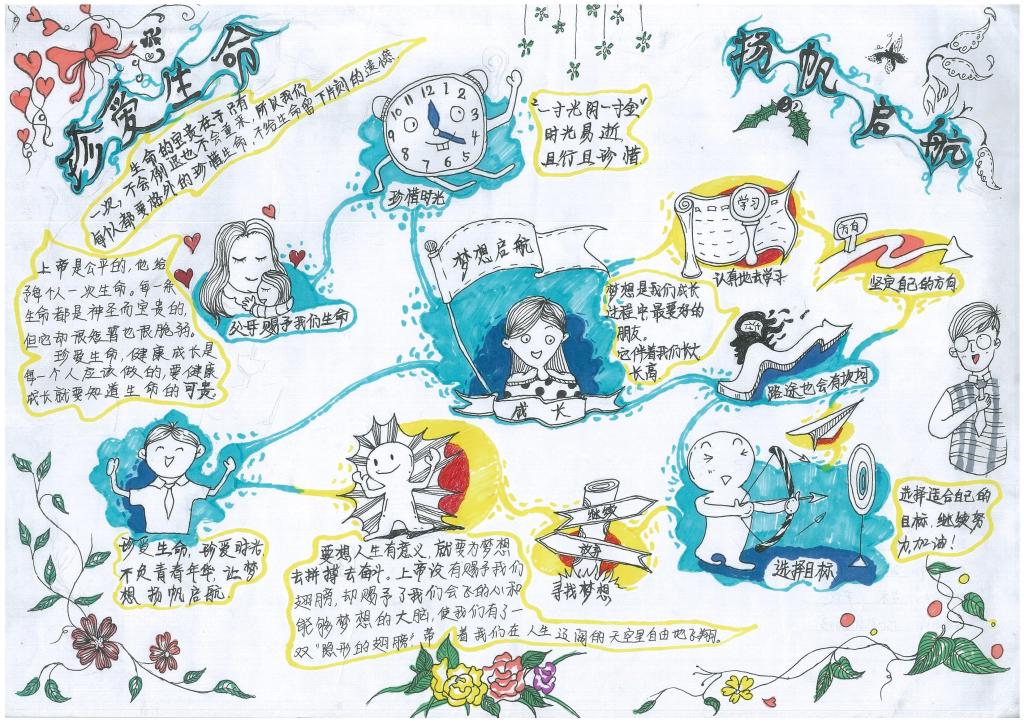 珍爱生命
扬帆启航
生命的宝贵在于只有
一次,不会倒退也不会重来,所以我们
每个人都要格外的珍惜生命,不给生命留下片刻的遗憾.
12
1
2
3
4
5
6
7
8
9
10
11
珍惜时光
"一寸光阴一寸金"
时光易逝
且行且珍惜
上帝是公平的,他给
了每个人一次生命。每一条
生命都是神圣而宝贵的,
但它却很短暂也很脆弱。
珍爱生命,健康成长是
每一个人应该做的,要健康
成长就要知道生命的可贵.
父母赐予我们生命
梦想启航
成长
梦想是我们成长
过程中最要好的
朋友。
它伴着我们长大
长高.
学习
认真地去学习
方向
坚定自己的方向
路途也会有坎坷
选择目标
选择适合自己的
目标,继续努
力,加油!
继续
放弃
寻找梦想
珍爱生命,珍爱时光,
不负青春年华,让梦
想,扬帆启航.
要想人生有意义,就要为梦想
去拼搏去奋斗。上帝没有赐予我们
翅膀,却赐予了我们会飞的心和
能够梦想的大脑,使我们有了一
双"隐形的翅膀",带着我们在人生辽阔的天空里自由地飞翔.